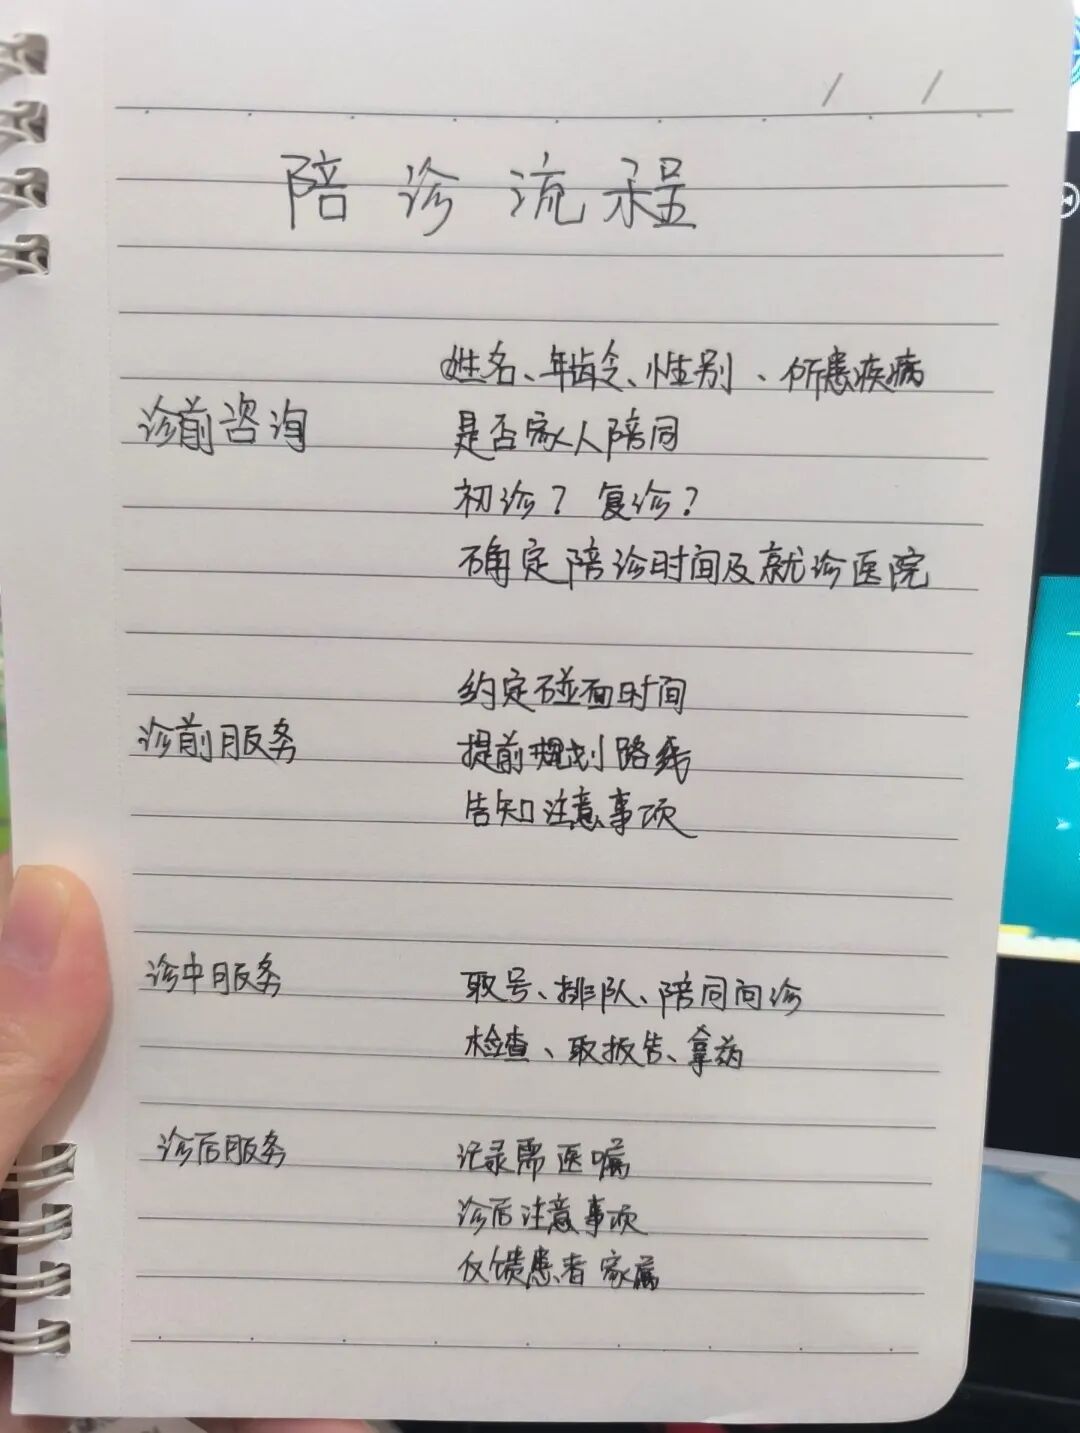 陪诊流程
姓名、年龄、性别、所患疾病
诊前咨询
是否家人陪同
初诊？复诊？
确定陪诊时间及就诊医院
约定碰面时间
诊前服务
提前规划路线
告知注意事项
诊中服务
取号、排队、陪同问诊
检查、取报告、拿药
诊后服务
记录需医嘱
诊后注意事项
反馈患者家属